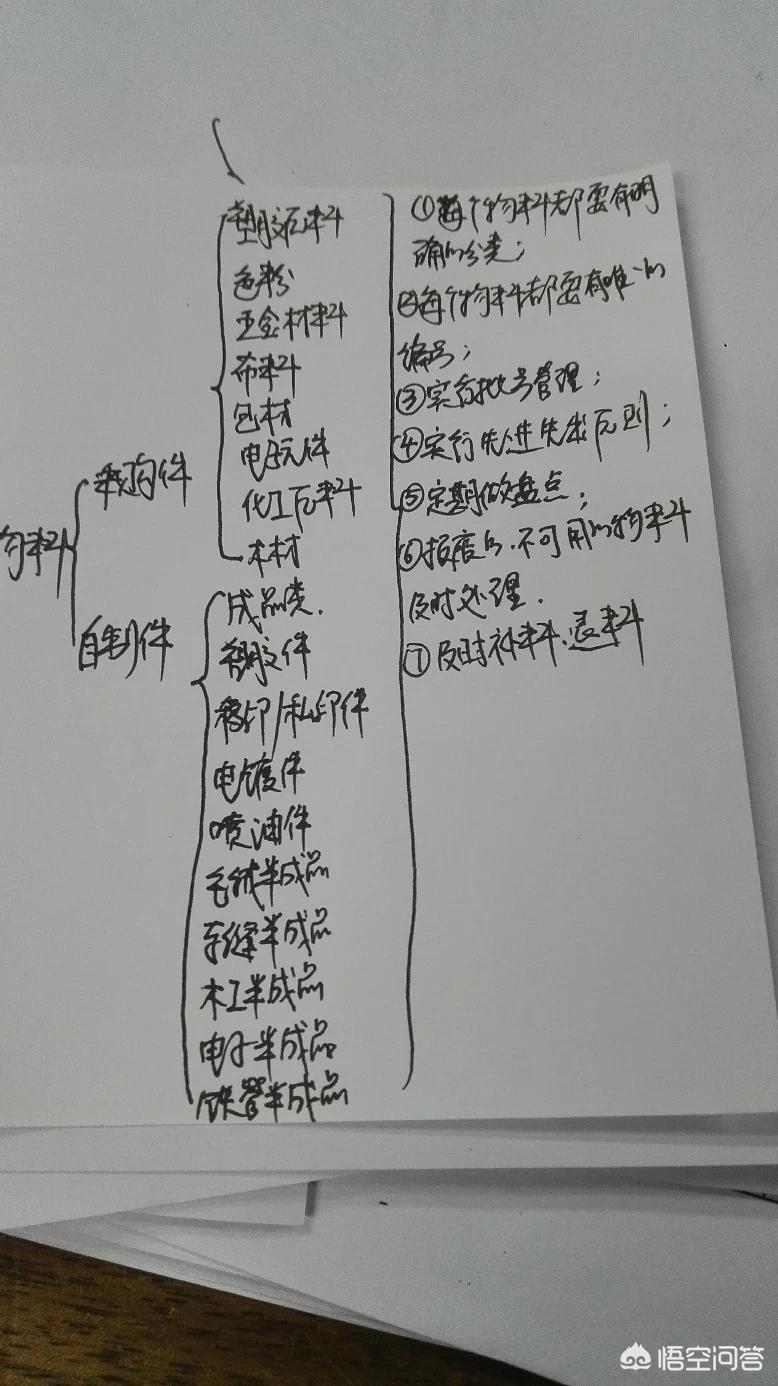 物料
采购件
塑胶原料
色粉
五金材料
布料
包材
电子元件
化工原料
木材
自制件
成品类.
塑胶件
移印/丝印件
电镀件
喷油件
毛绒半成品
车缝半成品
木工半成品
电子半成品
铁管半成品
①每个物料都要有明
确的分类;
②每个物料都要有唯一的
编号;
③实行批号管理;
④实行先进先出原则;
⑤定期做盘点;
⑥报废的.不可用的物料
及时处理.
⑦及时补料.退料
悟空问答